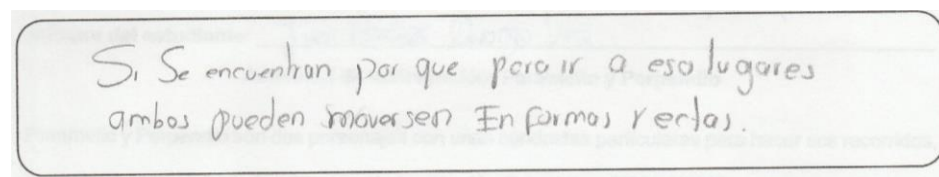 Si Se encuentran por que para ir a eso lugares
ambos pueden moversen En formas rectas.